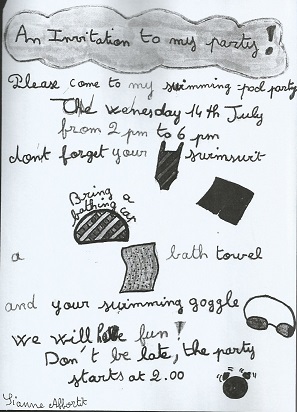 An Invitation to my party!
Please come to my swimming pool party
The wenesday 14th July
from 2 pm to 6 pm
dont forget your swimsuit
Bring a
bathing cap
a bath towel
and your swimming goggle
we will have fun!
Don't be late, the party
starts at 2.00